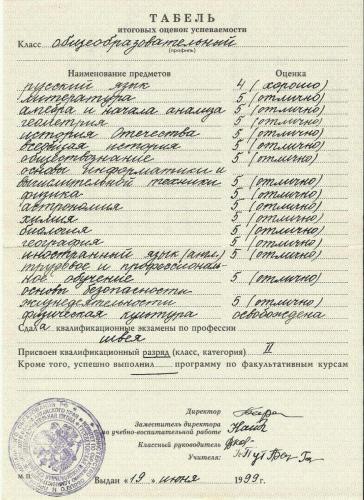 ТАБЕЛЬ
итоговых оценок успеваемости
Класс общеобразовательный
(профиль)
Наименование предметов Оценка
русский язык 4 (хорошо)
литература 5 (отлично)
алгебра и начала анализа 5 (отлично)
геометрия 5 (отлично)
история Отечества 5 (отлично)
всеобщая история 5 (отлично)
обществознание 5 (отлично)
основы информатики и
вычислительной техники 5 (отлично)
физика 5 (отлично)
астрономия 5 (отлично)
химия 5 (отлично)
биология 5 (отлично)
география 5 (отлично)
иностранный язык (англ) 5 (отлично)
трудовое и профессиональ-
ное обучение 5 (отлично)
основы безопасности
жизнедеятельности 5 (отлично)
физическая культура освобождена
Сдала квалификационные экзамены по профессии
швея
Присвоен квалификационный разряд (класс, категория) II
Кроме того, успешно выполнил программу по факультативным курсам
Директор
Заместитель директора
по учебно-воспитательной работе
Классный руководитель
Учителя:
М. П.
Выдан «19» июня 1999 г.